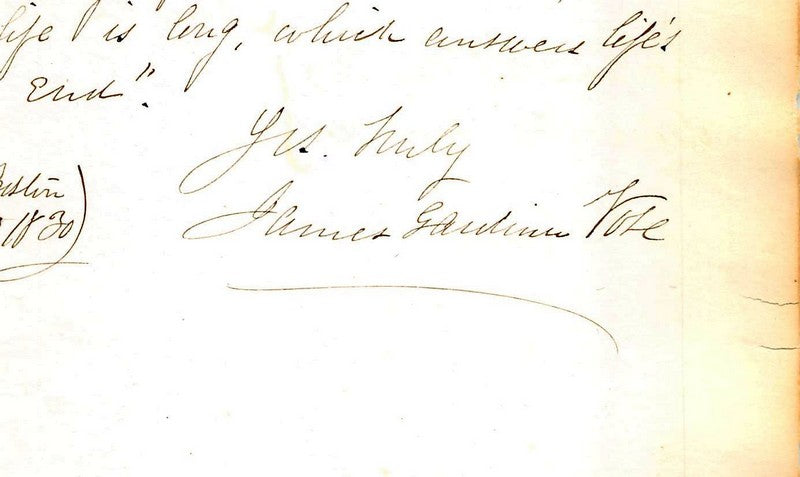 life is long, which answers life's
End".
Yrs. truly
James Gardiner Vose
1830)